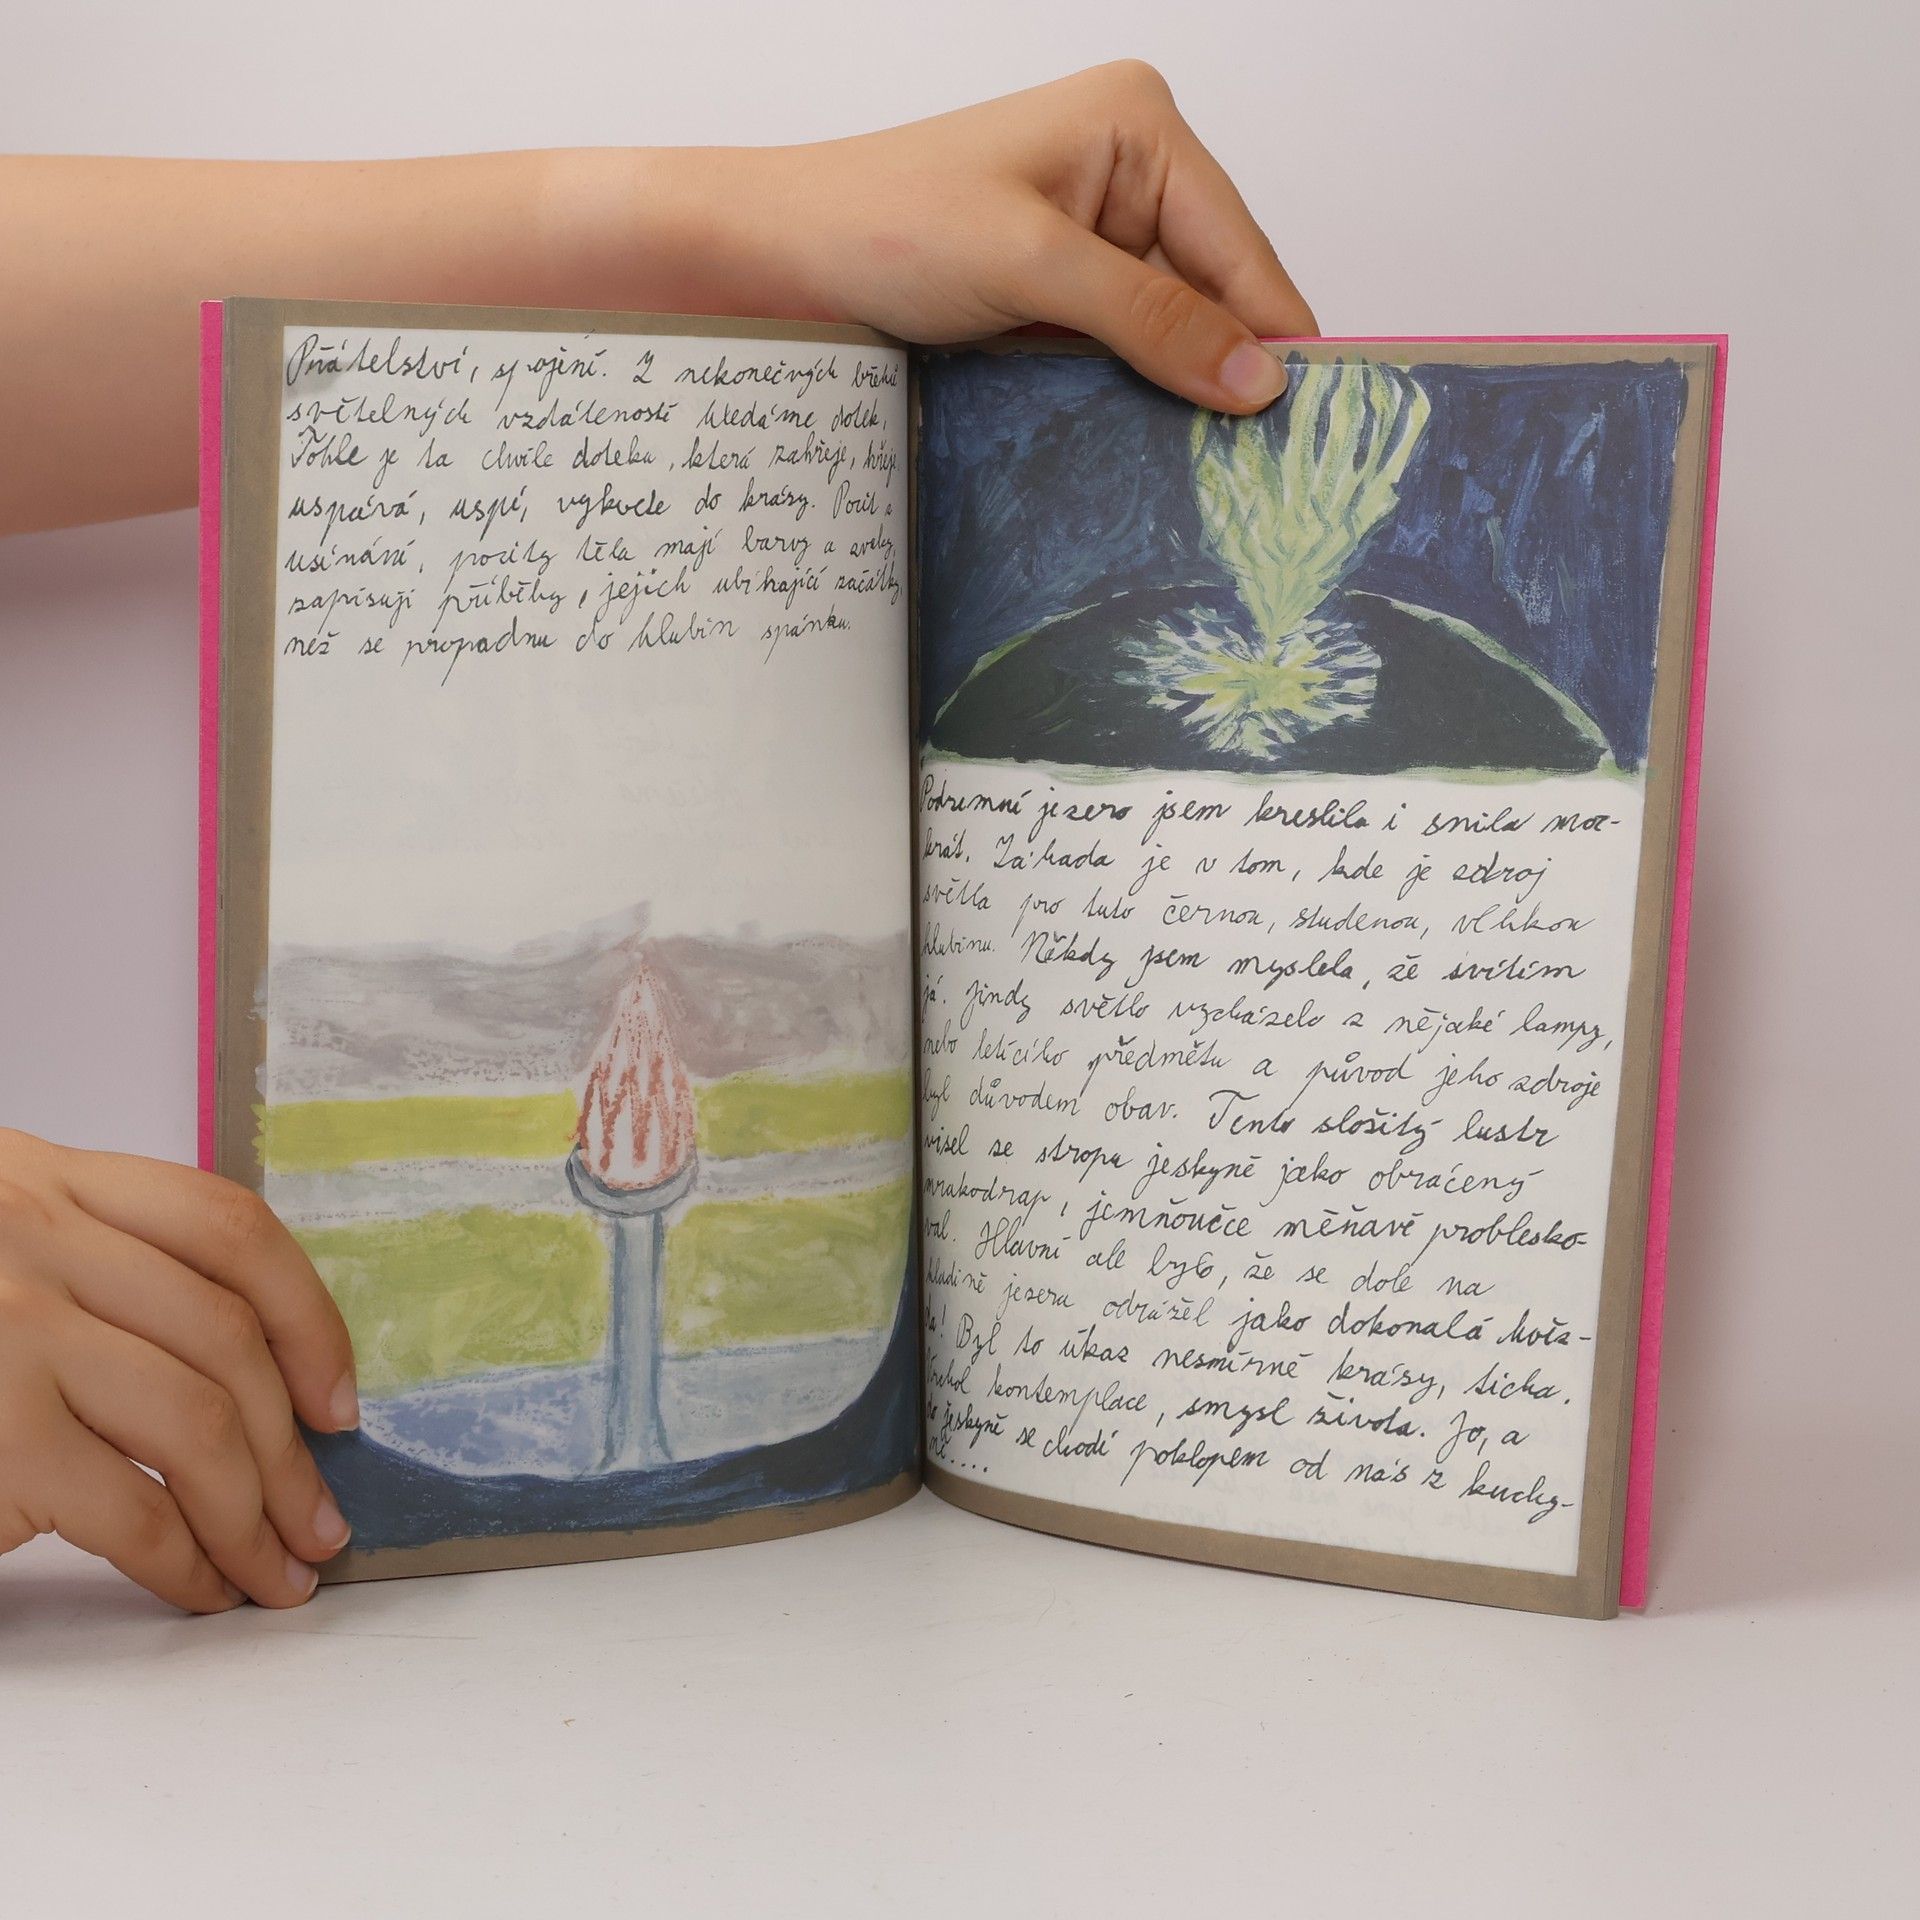 Přátelství, spojení. Z nekonečných břehů
světelných vzdáleností hledáme dotek.
Tohle je ta chvíle doteku, která zahřeje, hřeje
uspává, uspí, vykvete do krásy. Pocit z
usínání, pocity těla mají barvy a zvuky,
zapisují příběhy, jejich ubíhající začátky,
než se propadnu do hlubin spánku.
Podzemní jezero jsem kreslila i snila moc-
krát. Záhada je v tom, kde je zdroj
světla pro tuto černou, studenou, velikou
hlubinu. Někdy jsem myslela, že svítím
já. Jindy světlo vycházelo z nějaké lampy,
nebo letícího předmětu a původ jeho zdroje
byl důvodem obav. Tento složitý lustr
visel se stropu jeskyně jako obrácený
mrakodrap, jemňoučce měňavě problesko-
val. Hlavní ale bylo, že se dole na
hladině jezera odrážel jako dokonalá hvěz-
da! Byl to úkaz nesmírné krásy, ticha.
Vrchol kontemplace, smysl života. Jo, a
do jeskyně se chodí poklopem od nás z kuchy-
ně....